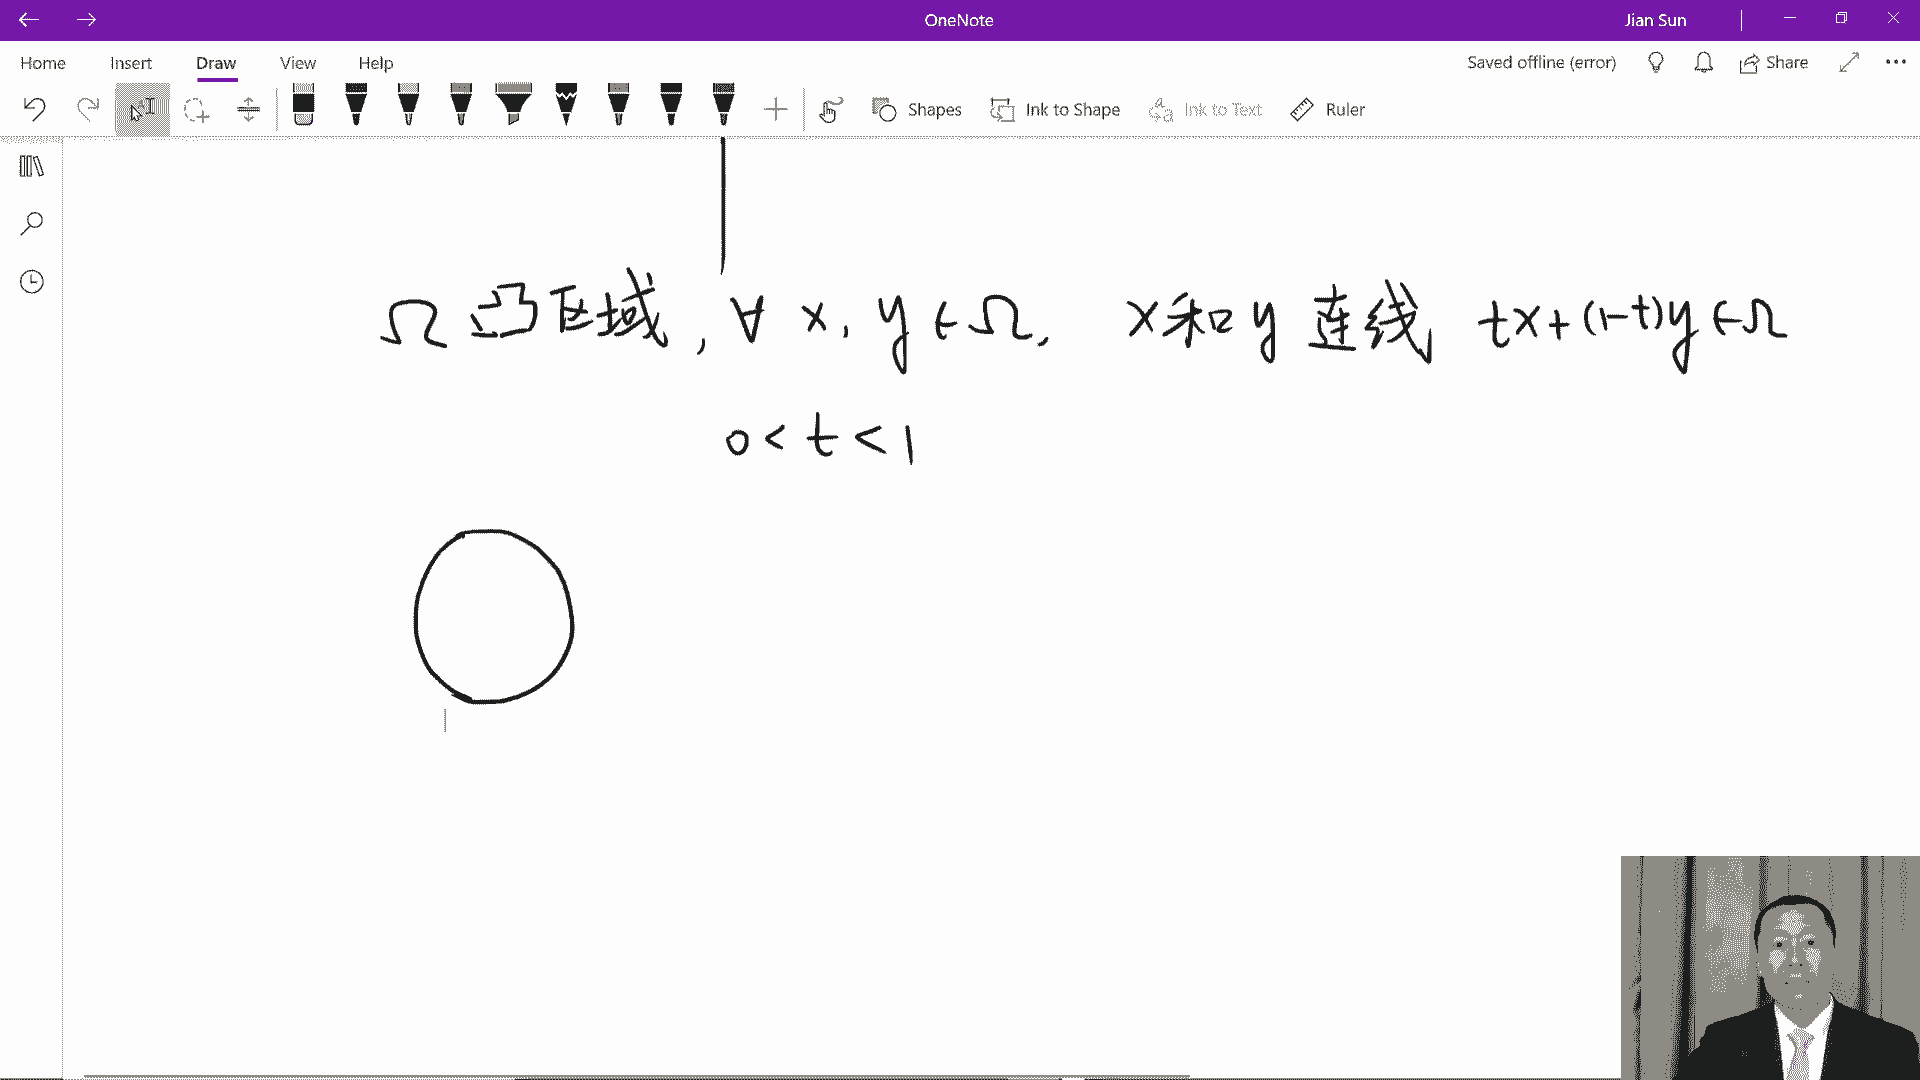 OneNote
Jian Sun
Home Insert Draw View Help
Saved offline (error)
Share
Shapes
Ink to Shape
Ink to Text
Ruler
Ω 凸区域, ∀ x, y ∈ Ω, x和y 连线 tx+(1-t)y ∈ Ω
0 < t < 1